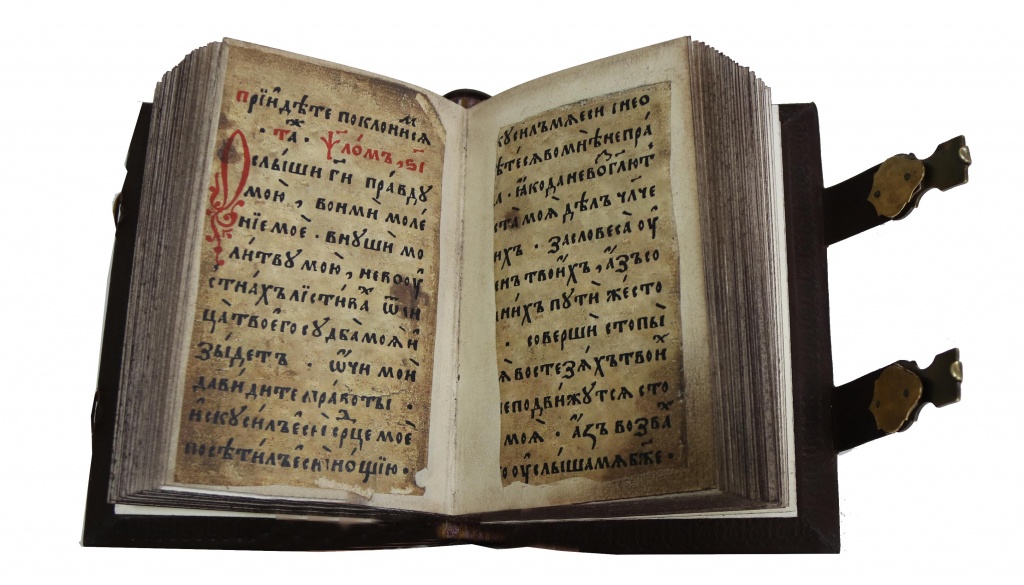 прїидѣте поклониⷨсѧ
· таⷤ · ѱло́мъ, ѕ҃і
слыши гй пра́вдꙋ
мою̀, вонми моле́
нїе моѐ · внꙋши мо
литвꙋ мою̀, не во оу
стна́хъ лїстивⷯа ѿ ли
ца твоего сꙋдба̀ моѧ̀ и
зы́детъ · ѿчи мои̇
да видите правоты ·
и̇скꙋси́лъ еси срⷣце моѐ
посѣти́лъ еси но́щїю ·
кꙋсилъ мѧ еси і не о
ѣтесѧ во мнѣ непра́
а · ꙗ̇ко да не воꙁглю́т
ста̀ моѧ̀ дѣлъ члче
ихъ · за словеса оу
енъ твои́хъ, а́зъ со
ни́хъ пꙋтѝ же́сто
· соверши̇ стопы
ѧ̀ во стезѧⷯхъ твои
неподви́жꙋтсѧ сто
моѧ̀ · а́зъ возваⷯ
ꙗко оу̇слыша мѧ бж҃е ·